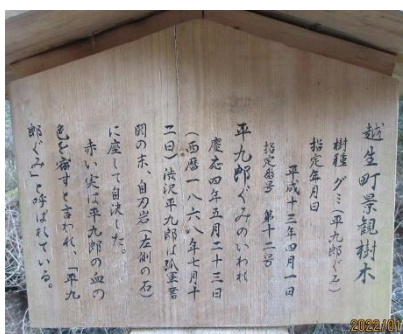 越生町景観樹木
樹種 グミ(平九郎ぐみ)
指定年月日
平成十三年四月一日
指定番号 第十二号
平九郎ぐみのいわれ
慶応四年五月二十三日
(西暦一八六八年七月十
二日)渋沢平九郎は孤軍奮
闘の末、自刃岩(左側の石)
に座して自決した。
赤い実は平九郎の血の
色を宿すと言われ、「平九
郎ぐみ」と呼ばれている。
2022/01